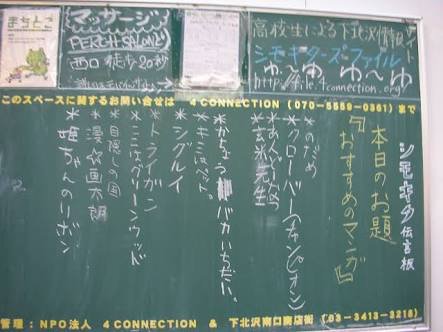 まちとこ
マッサージ
PERCH SALON2
西口徒歩20秒
高校生による下北沢情報サイト
シモキターズ・ファイル
http://file.4connection.org/
ゆ〜ゆ ゆ〜ゆ
このスペースに関するお問い合せは 4 CONNECTION (070-5559-0361) まで
シモキタ伝言板
本日のお題
『おすすめのマンガ』
*のだめ
*クローバー(チャンピオン)
*あんどーなつ
*玄米先生
*かちょうバカいちだい。
*キミはペット。
*シグルイ
*トライガン
*ここはグリーンウッド
*目隠しの国
*漫☆画太郎
*姫ちゃんのリボン
管理:NPO法人 4 CONNECTION & 下北沢南口商店街 (03-3413-3218)